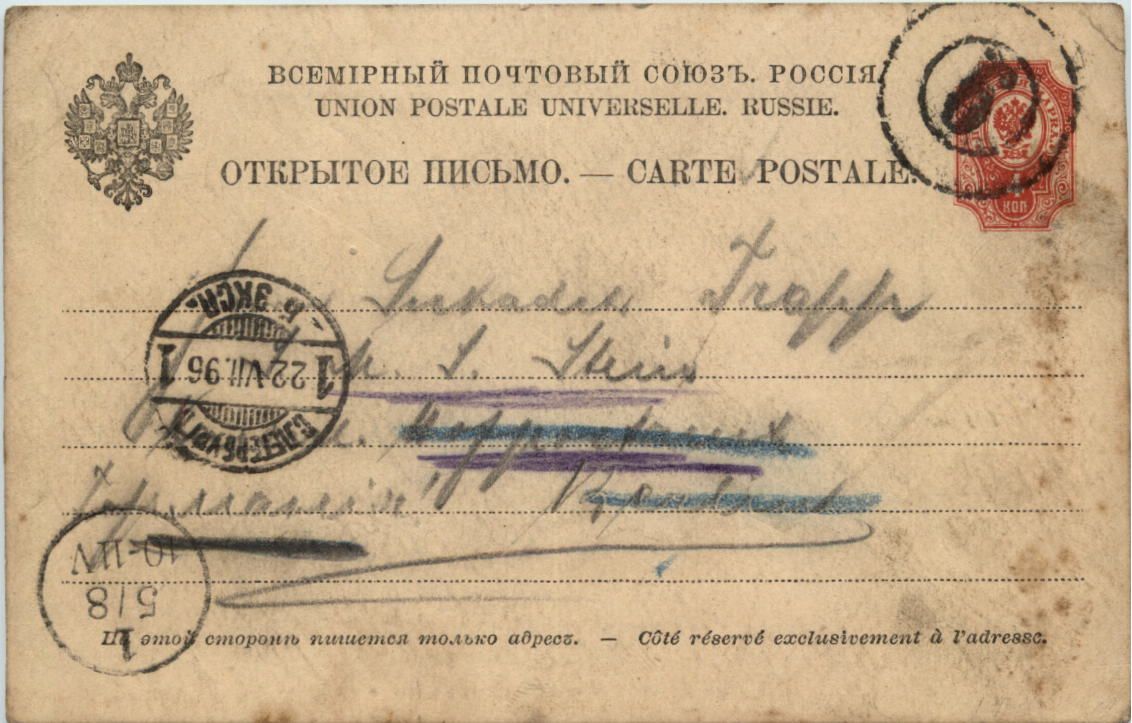 ВСЕМІРНЫЙ ПОЧТОВЫЙ СОЮЗЪ. РОССІЯ.
UNION POSTALE UNIVERSELLE. RUSSIE.
ОТКРЫТОЕ ПИСЬМО. — CARTE POSTALE.
4
КОП
Trapp
S. Stein
Германія
С.ПЕТЕРБУРГЪ
1 22.VII.96 1
5 ЭКСП.
1
5/8
10-11V
На этой сторонѣ пишется только адресъ. — Côté réservé exclusivement à l'adresse.